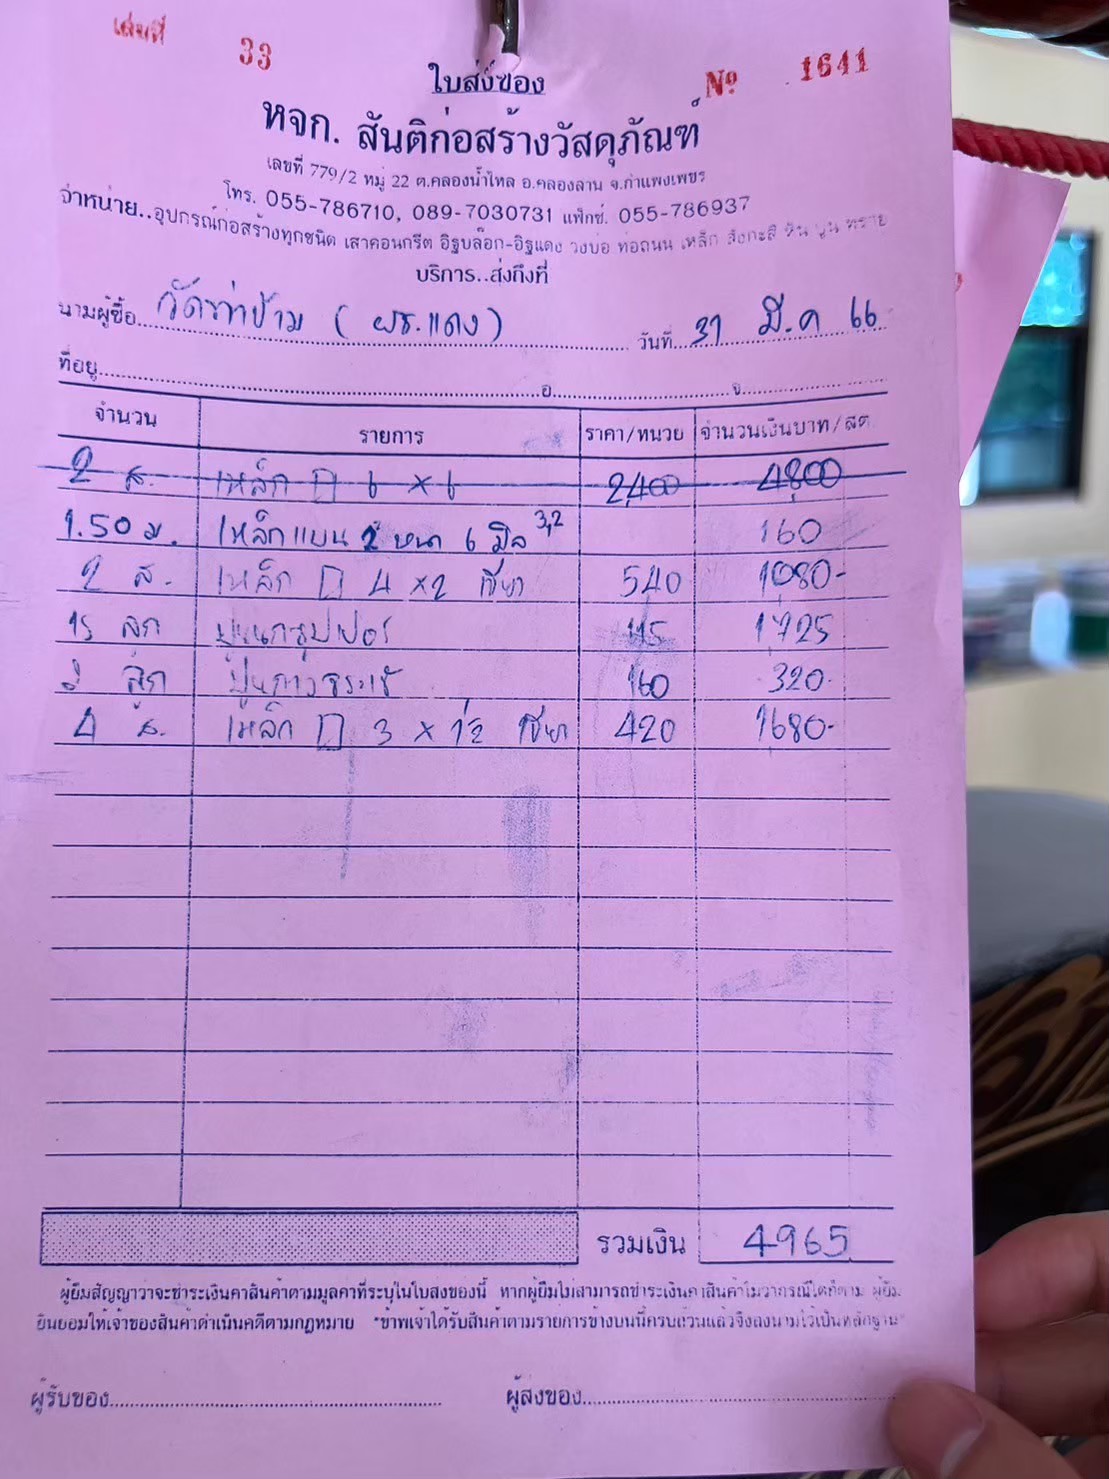 เล่มที่ 33 Nº 1641
ใบส่งของ
หจก. สันติก่อสร้างวัสดุภัณฑ์
เลขที่ 779/2 หมู่ 22 ต.คลองน้ำไหล อ.คลองลาน จ.กำแพงเพชร
โทร. 055-786710, 089-7030731 แฟ็กซ์. 055-786937
จำหน่าย..อุปกรณ์ก่อสร้างทุกชนิด เสาคอนกรีต อิฐบล๊อก-อิฐแดง วงบ่อ ท่อถนน เหล็ก สังกะสี หิน ปูน ทราย
บริการ..ส่งถึงที่
นามผู้ซื้อ วัดท่าข้าม ( ผช.แดง ) วันที่ 31 มี.ค 66
ที่อยู่ อ. จ.
จำนวน รายการ ราคา/หน่วย จำนวนเงินบาท/สต.
2 ส. เหล็ก □ 6 × 6 2,400 4800
1.50 ม. เหล็กแบน 2 หนา 6 มิล 3,2 160
2 ส. เหล็ก □ 4 ×2 เขียว 540 1080-
15 ลูก ปูนกาวซุปเปอร์ 115 1725
2 ลูก ปูนกาวจระเข้ 160 320-
4 ส. เหล็ก □ 3 × 1½ เขียว 420 1680-
รวมเงิน 4965
ผู้ยืมสัญญาว่าจะชำระเงินค่าสินค้าตามมูลค่าที่ระบุในใบส่งของนี้ หากผู้ยืมไม่สามารถชำระเงินค่าสินค้าไม่ว่ากรณีใดก็ตาม ผู้ยืม
ยินยอมให้เจ้าของสินค้าดำเนินคดีตามกฎหมาย "ข้าพเจ้าได้รับสินค้าตามรายการข้างบนนี้ครบถ้วนแล้วจึงลงนามไว้เป็นหลักฐาน"
ผู้รับของ ผู้ส่งของ